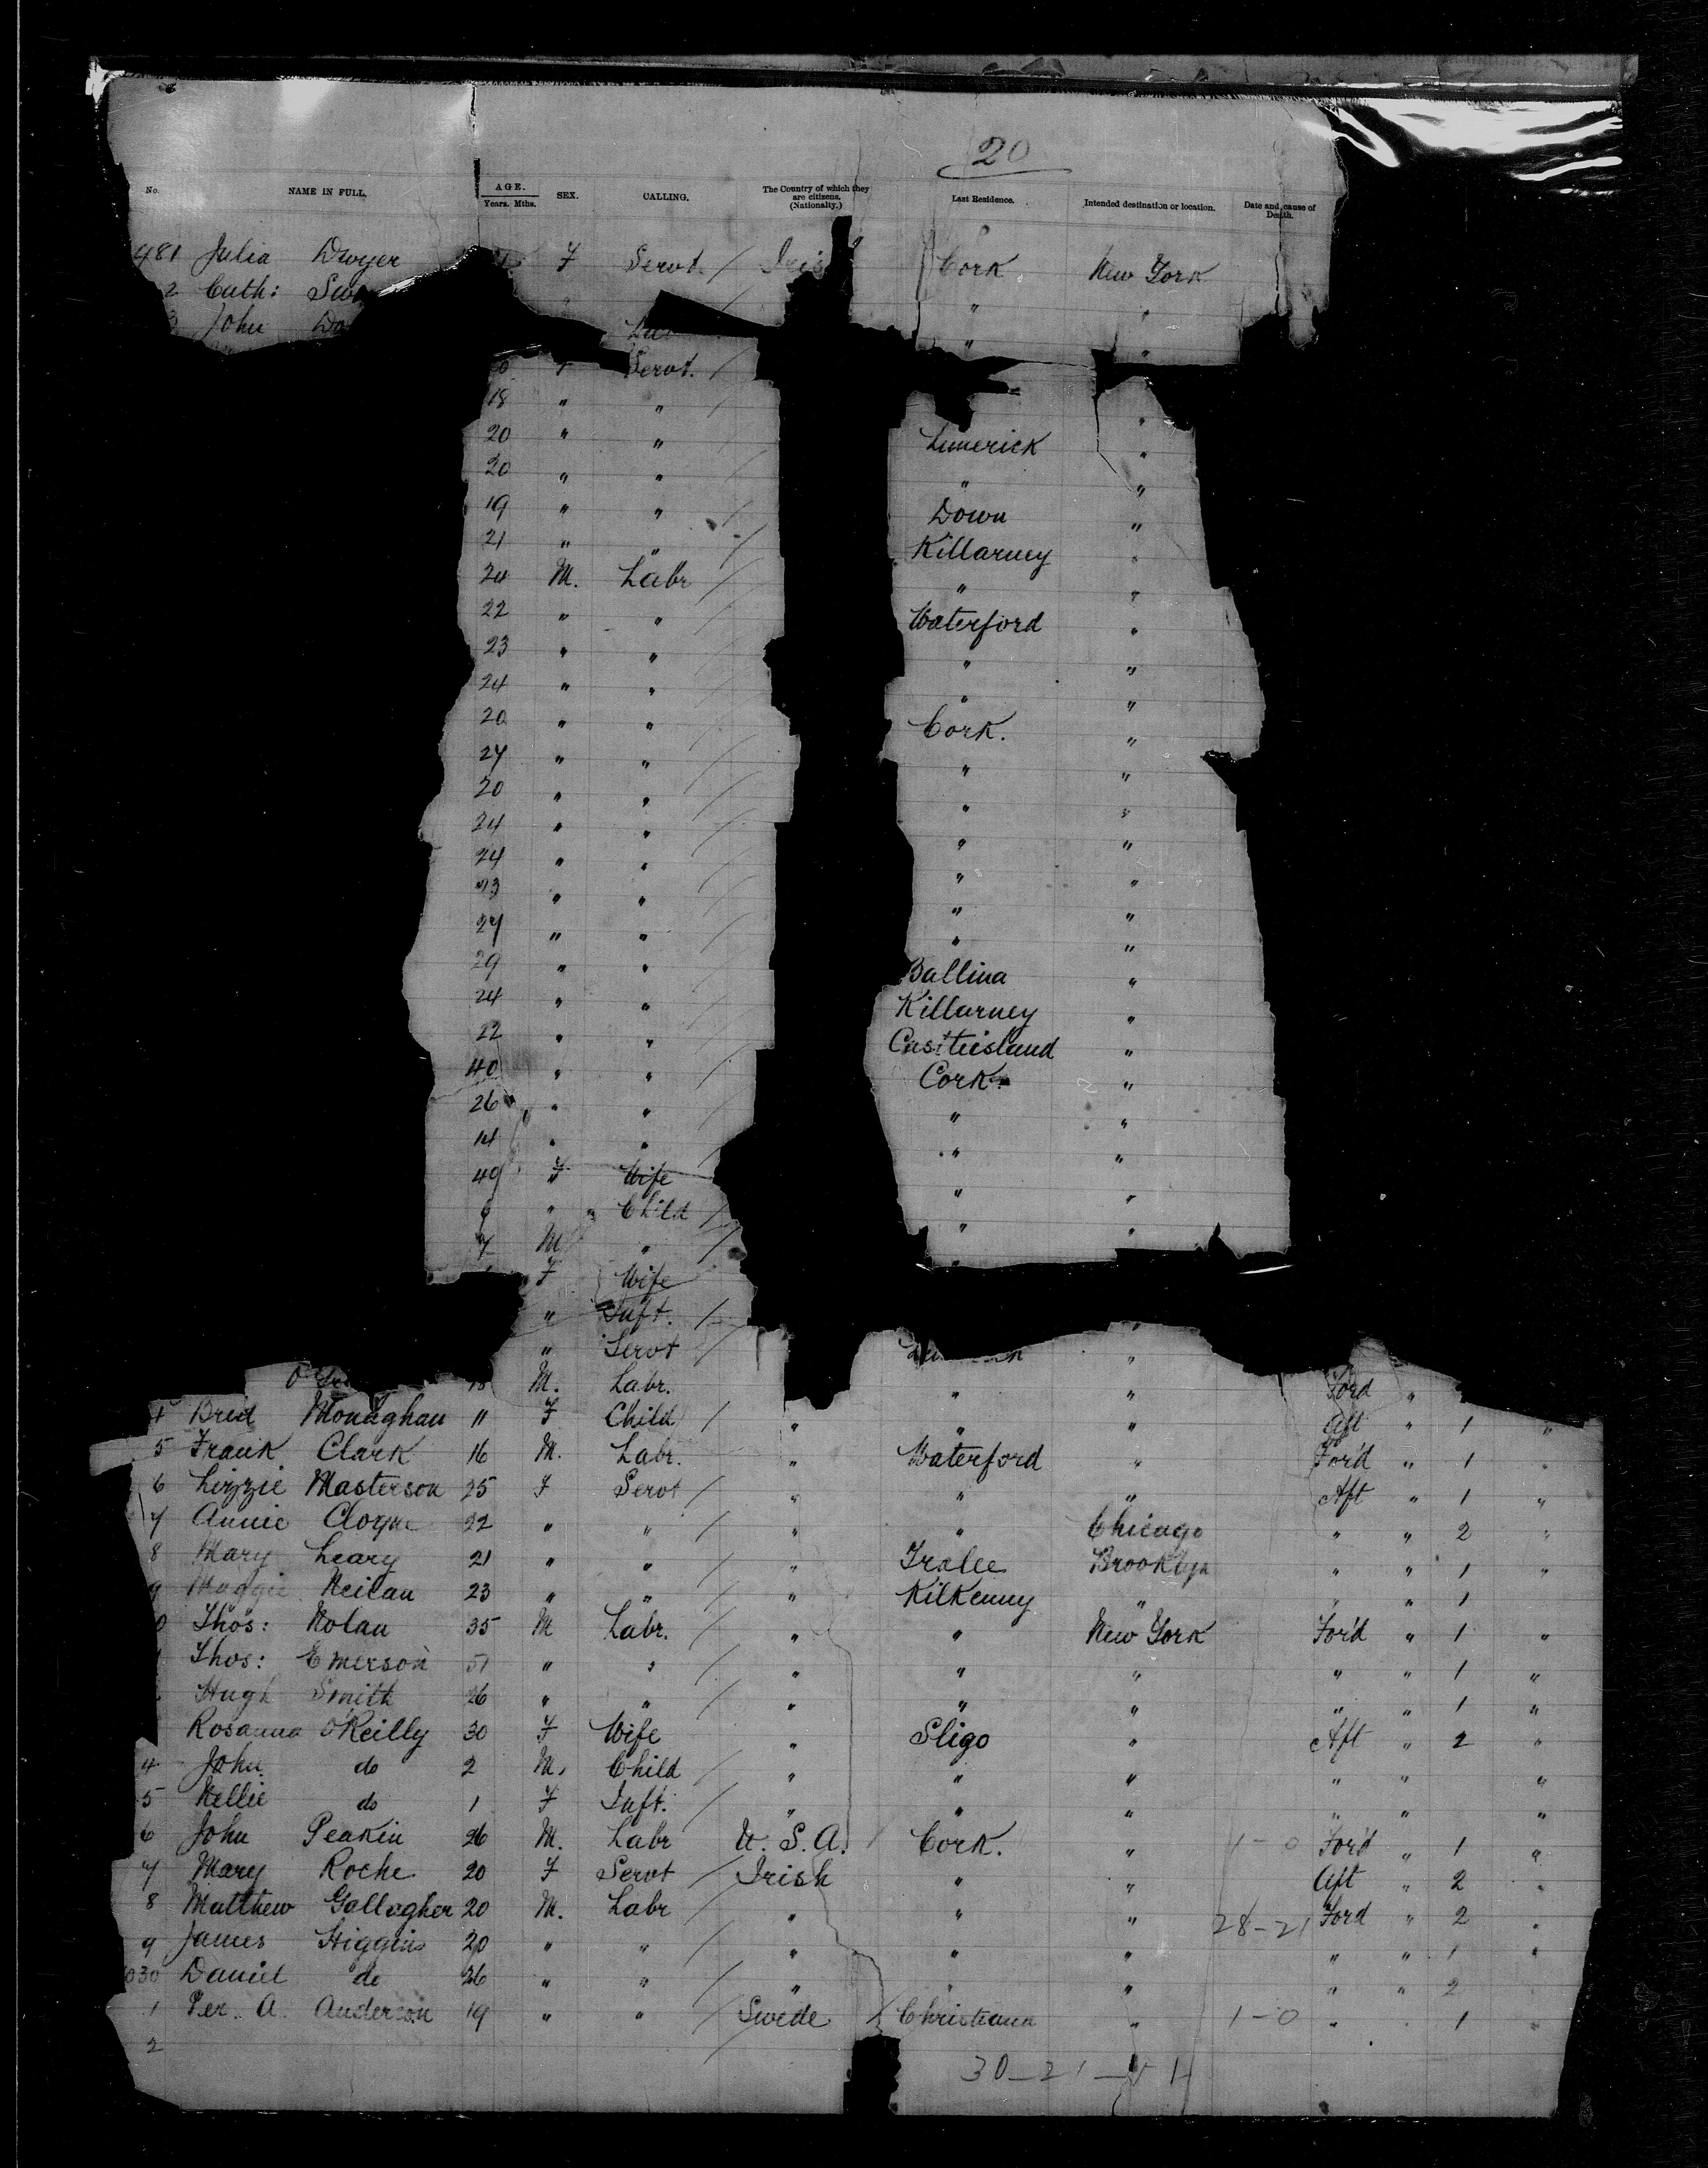 20
No. NAME IN FULL. AGE. Years. Mths. SEX. CALLING. The Country of which they are citizens. (Nationalty.) Last Residence. Intended destination or location. Date and cause of Death.
481 Julia Dwyer F Servt. / Iris Cork New York
2 Cath: " "
3 John " "
Servt. / "
18 " " / "
20 " " Limerick "
20 " " / " "
19 " " / Down "
21 " " / Killarney "
24 M. Labr / " "
22 " " / Waterford "
23 " " / " "
24 " " / " "
20 " " / Cork. "
27 " " / " "
20 " " / " "
24 " " / " "
24 " " / " "
23 " " / " "
27 " " / " "
29 " " / Ballina "
24 " " / Killarney "
22 " " / Castleisland "
40 " " / Cork "
26 " " " "
14 " " / " "
49 F Wife " "
6 " " Child / " "
7 M " / "
F Wife
" Inft. /
" Servt / "
18 M. Labr. " " Ford "
4 Brid Monaghan 11 F Child / " " " Aft " 1 "
5 Frank Clark 16 M. Labr. " Waterford " For'd " 1 "
6 Lizzie Masterson 25 F Servt / " " " Aft " 1 "
7 Annie Cloyne 22 " " / " " Chicago " " 2 "
8 Mary Leary 21 " " / " Tralee Brooklyn " " 1 "
9 Maggie Neilan 23 " " / " Kilkenny " " " 1
0 Thos: Nolan 35 M Labr. " " New York For'd " 1 "
Thos: Emerson 51 " " / " " " " " 1 "
Hugh Smith 26 " " / " " " " " 1 "
Rosanna O'Reilly 30 F Wife " Sligo " Aft " 2 "
4 John do 2 M. Child / " " " " " "
5 Nellie do 1 F Inft. / " " " " " "
6 John Peakin 26 M. Labr U. S. A. / Cork. " 1-0 For'd " 1 "
7 Mary Roche 20 F Servt / Irish " " Aft " 2 "
8 Matthew Gallagher 20 M. Labr " " " 28-21 For'd " 2 "
9 James Higgins 20 " " " " " " " 1 "
030 Daniel do 26 " " / " " " " " 2
1 Per. A. Anderson 19 " " / Swede / Christiana " 1-0 " 1 "
2
30-21